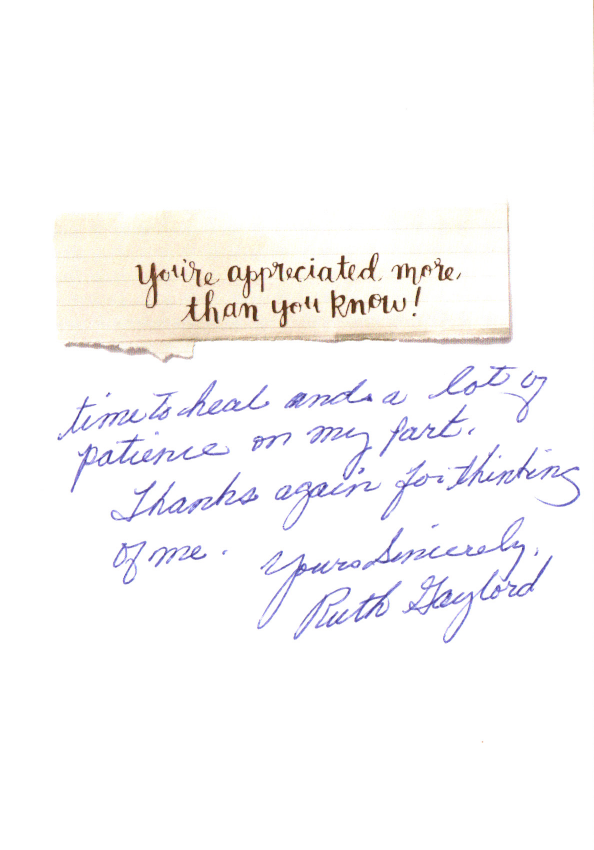 You're appreciated more
than you know!
time to heal and a lot of
patience on my part.
Thanks again for thinking
of me.
Yours Sincerely,
Ruth Gaylord